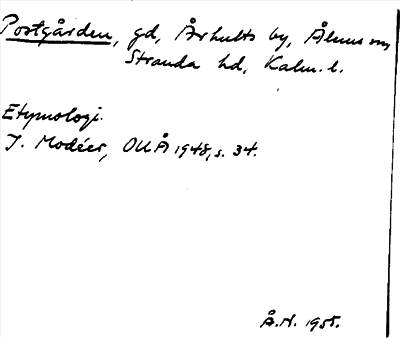 Postgården, gd, Århults by, Ålems sn,
Stranda hd, Kalm. l.
Etymologi.
I. Modéer, OUÅ 1948, s. 34.
Å.N. 1955.